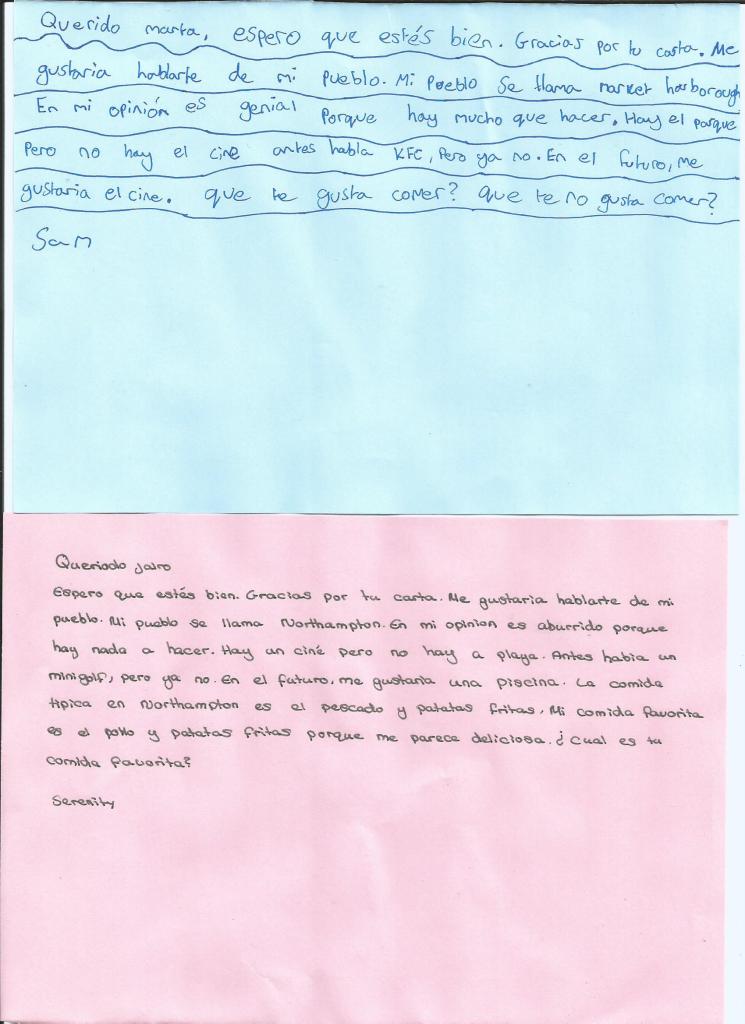 Querido marta, espero que estés bien. Gracias por tu carta. Me
gustaria hablarte de mi pueblo. Mi Pueblo Se llama market harborough
En mi opinión es genial Porque hay mucho que hacer. Hay el parque
Pero no hay el cine antes habla KFC, Pero ya no. En el futuro, me
gustaria el cine. que te gusta comer? que te no gusta comer?
Sam
Queriodo jairo
Espero que estés bien. Gracias por tu carta. Me gustaria hablarte de mi
pueblo. Mi pueblo se llama Northampton. En mi opinion es aburrido porque
hay nada a hacer. Hay un ciné pero no hay a playa. Antes habia un
minigolf, pero ya no. En el futuro, me gustaria una piscina. La comida
tipica en Northampton es el pescado y patatas fritas. Mi comida favorita
es el pollo y patatas fritas porque me parece deliciosa. ¿Cual es tu
comida favorita?
Serenity